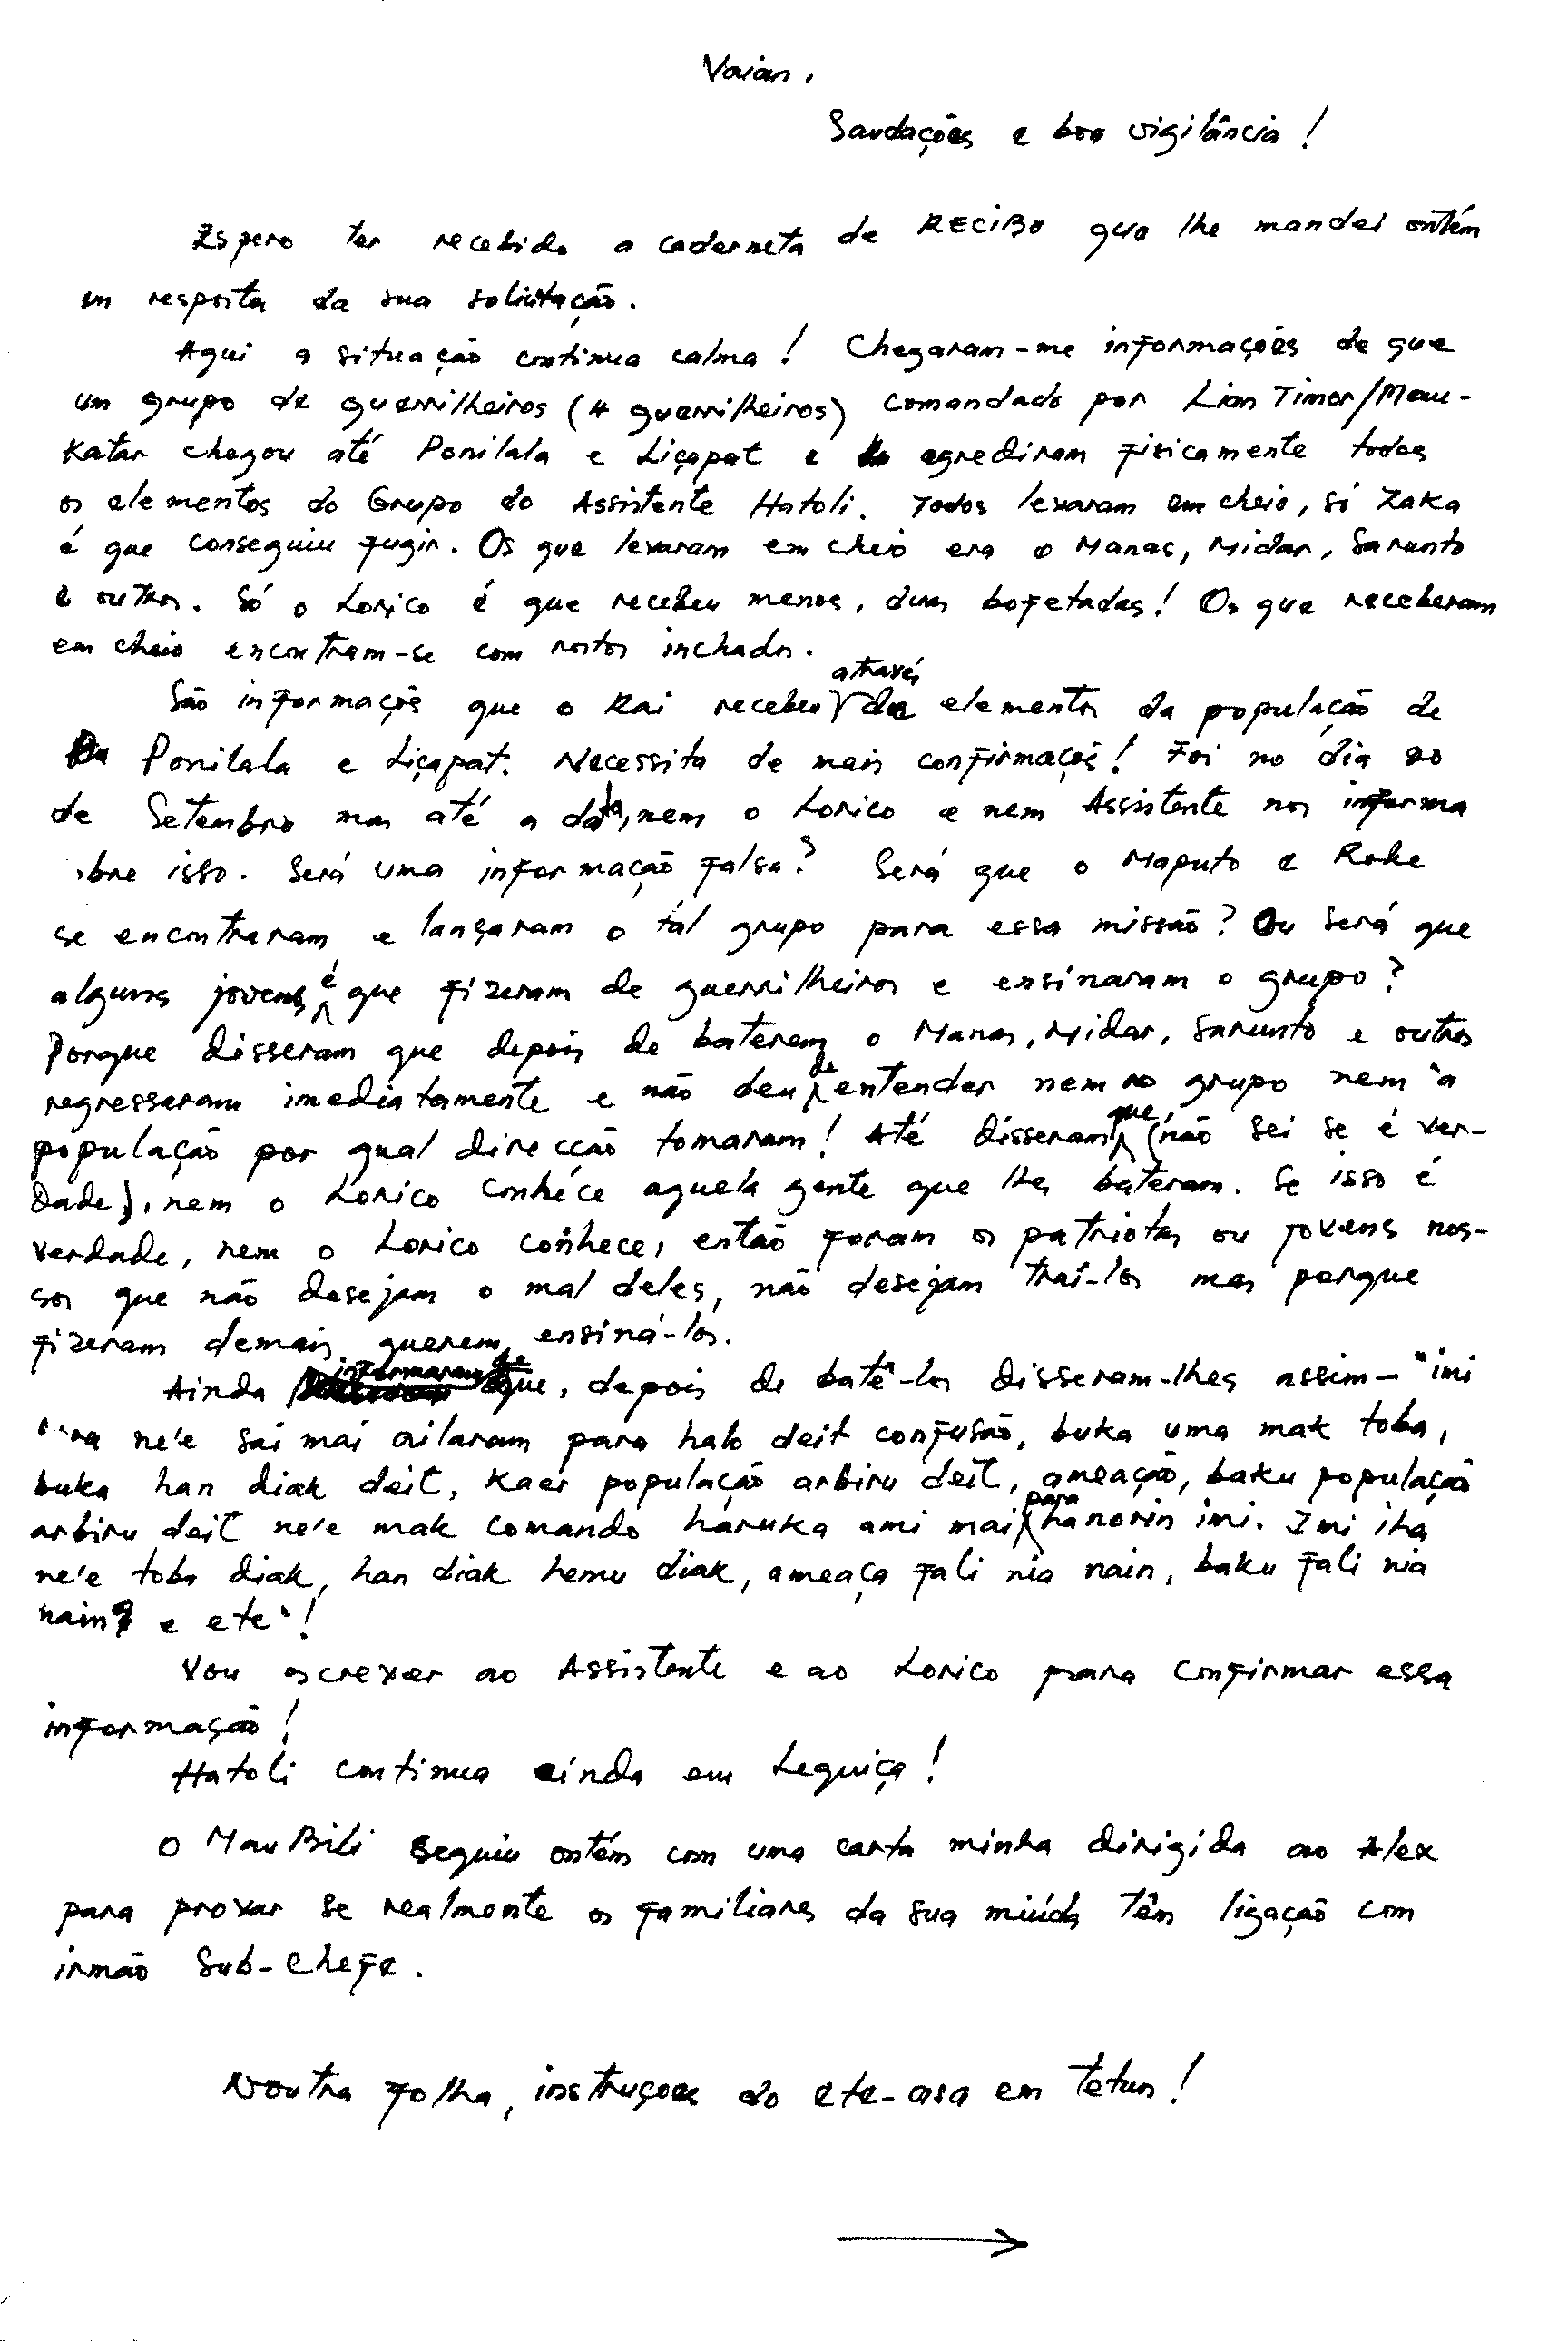 Vaian,
Saudações e boa vigilância!
Espero ter recebido a caderneta de RECIBO que lhe mandei ontém
em resposta da sua solicitação.
Aqui a situação continua calma! Chegaram-me informações de que
um grupo de guerrilheiros (4 guerrilheiros) comandado por Lian Timor/Mau-
Katar chegou até Ponilala e Liçapat e agrediram fisicamente todos
os elementos do Grupo do Assistente Hatoli. Todos levaram em cheio, só Zaka
é que conseguiu fugir. Os que levaram em cheio era o Manas, Midar, Sarunto
e outros. Só o Lorico é que recebeu menos, duas bofetadas! Os que receberam
em cheio encontram-se com rostos inchados.
São informações que o Rai recebeu através de elementos da população de
Ponilala e Liçapat. Necessita de mais confirmações! Foi no dia 20
de Setembro mas até a data, nem o Lorico e nem Assistente nos informa
obre isso. Será uma informação falsa? Será que o Maputo e Roke
se encontraram e lançaram o tal grupo para essa missão? Ou será que
alguns jovens é que fizeram de guerrilheiros e ensinaram o grupo?
Porque disseram que depois de baterem o Manas, Midar, Sarunto e outros
regressaram imediatamente e não deu de entender nem no grupo nem à
população por qual direcção tomaram! Até disseram que (não sei se é ver-
dade), nem o Lorico conhéce aquela gente que lhes bateram. Se isso é
verdade, nem o Lorico conhece, então foram os patriotas ou jovens nos-
sos que não desejam o mal deles, não desejam traí-los mas porque
fizeram demais querem ensiná-los.
Ainda informaram de que, depois de batê-los disseram-lhes assim - "imi
ne'e sai mai ailaram para halo deit confusão, buka uma mak toba,
buka han diak deit, kaer população arbiru deit, ameação, baku população
arbiru deit ne'e mak comando haruka ami mai para hanorin imi. Imi iha
ne'e toba diak, han diak hemu diak, ameaça fali nia nain, baku fali nia
nain e etc"!
Vou escrever ao Assistente e ao Lorico para confirmar essa
informação!
Hatoli continua ainda em Leguiça!
O MauBili seguiu ontém com uma carta minha dirigida ao Alex
para provar se realmente os familiares da sua miúda têm ligação com
irmão Sub-Chefe.
Noutra folha, instruções do ete-asa em tetun!